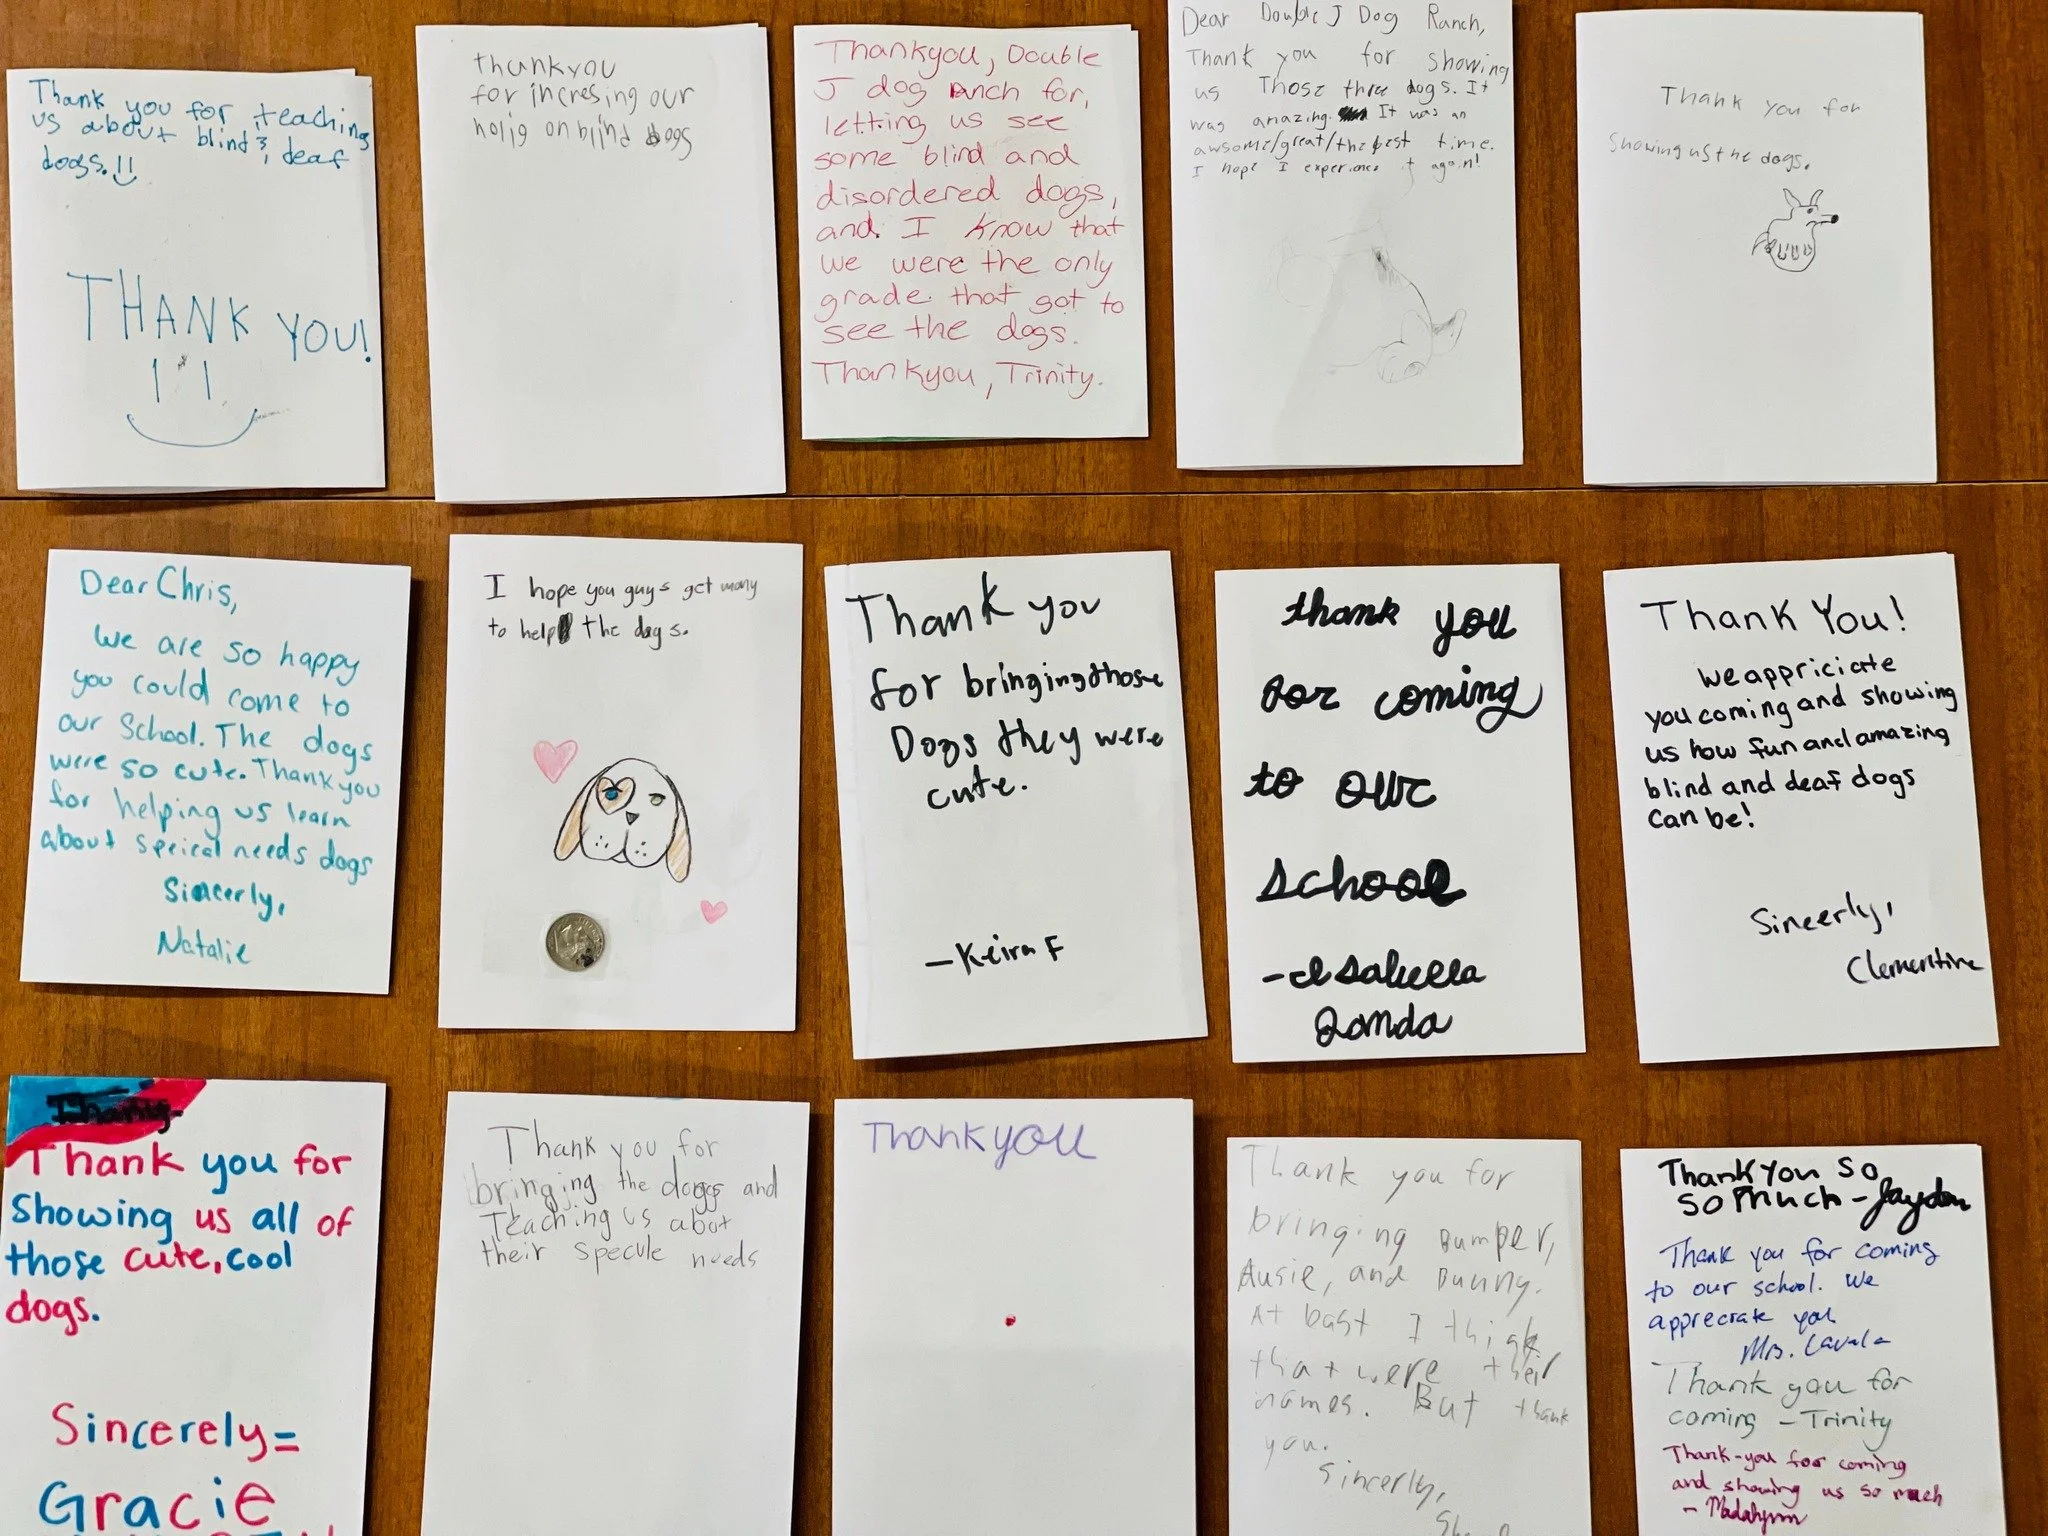 Thank you for teaching
us about blind &, deaf
dogs.!!
THANK YOU!
thankyou
for incresing our
nolig on blind dogs
Thankyou, Double
J dog ranch for,
letting us see
some blind and
disordered dogs,
and. I know that
we were the only
grade that got to
see the dogs.
Thankyou, Trinity.
Dear Double J Dog Ranch,
Thank you for showing
us Those three dogs. It
was amazing. It was an
awsome/great/the best time.
I hope I experience it again!
Thank you for
Showing us the dogs.
Dear Chris,
We are so happy
you could come to
our School. The dogs
were so cute. Thank you
for helping us learn
about sperical needs dogs
Sincerly,
Natalie
I hope you guys get many
to help the dogs.
Thank you
for bringing those
Dogs they were
cute.
- Keira F
thank you
for coming
to our
school
- Isabella
Thank You!
we appriciate
you coming and showing
us how fun and amazing
blind and deaf dogs
can be!
Sincerly,
Clementine
Thank you for
showing us all of
those cute, cool
dogs.
Sincerely=
Gracie
Thank you for
bringing the doggs and
Teaching us abot
their specule needs
Thank you
Thank you for
bringing Bumper,
Ausie, and Bunny.
At bast I think
that were their
names. But thank
you.
Sincerly,
Thank You so
so much - Jaydon
Thank you for coming
to our school. We
appreciate you
Mrs.
Thank you for
coming - Trinity
Thank-you for coming
and showing us so much
- Madalynn